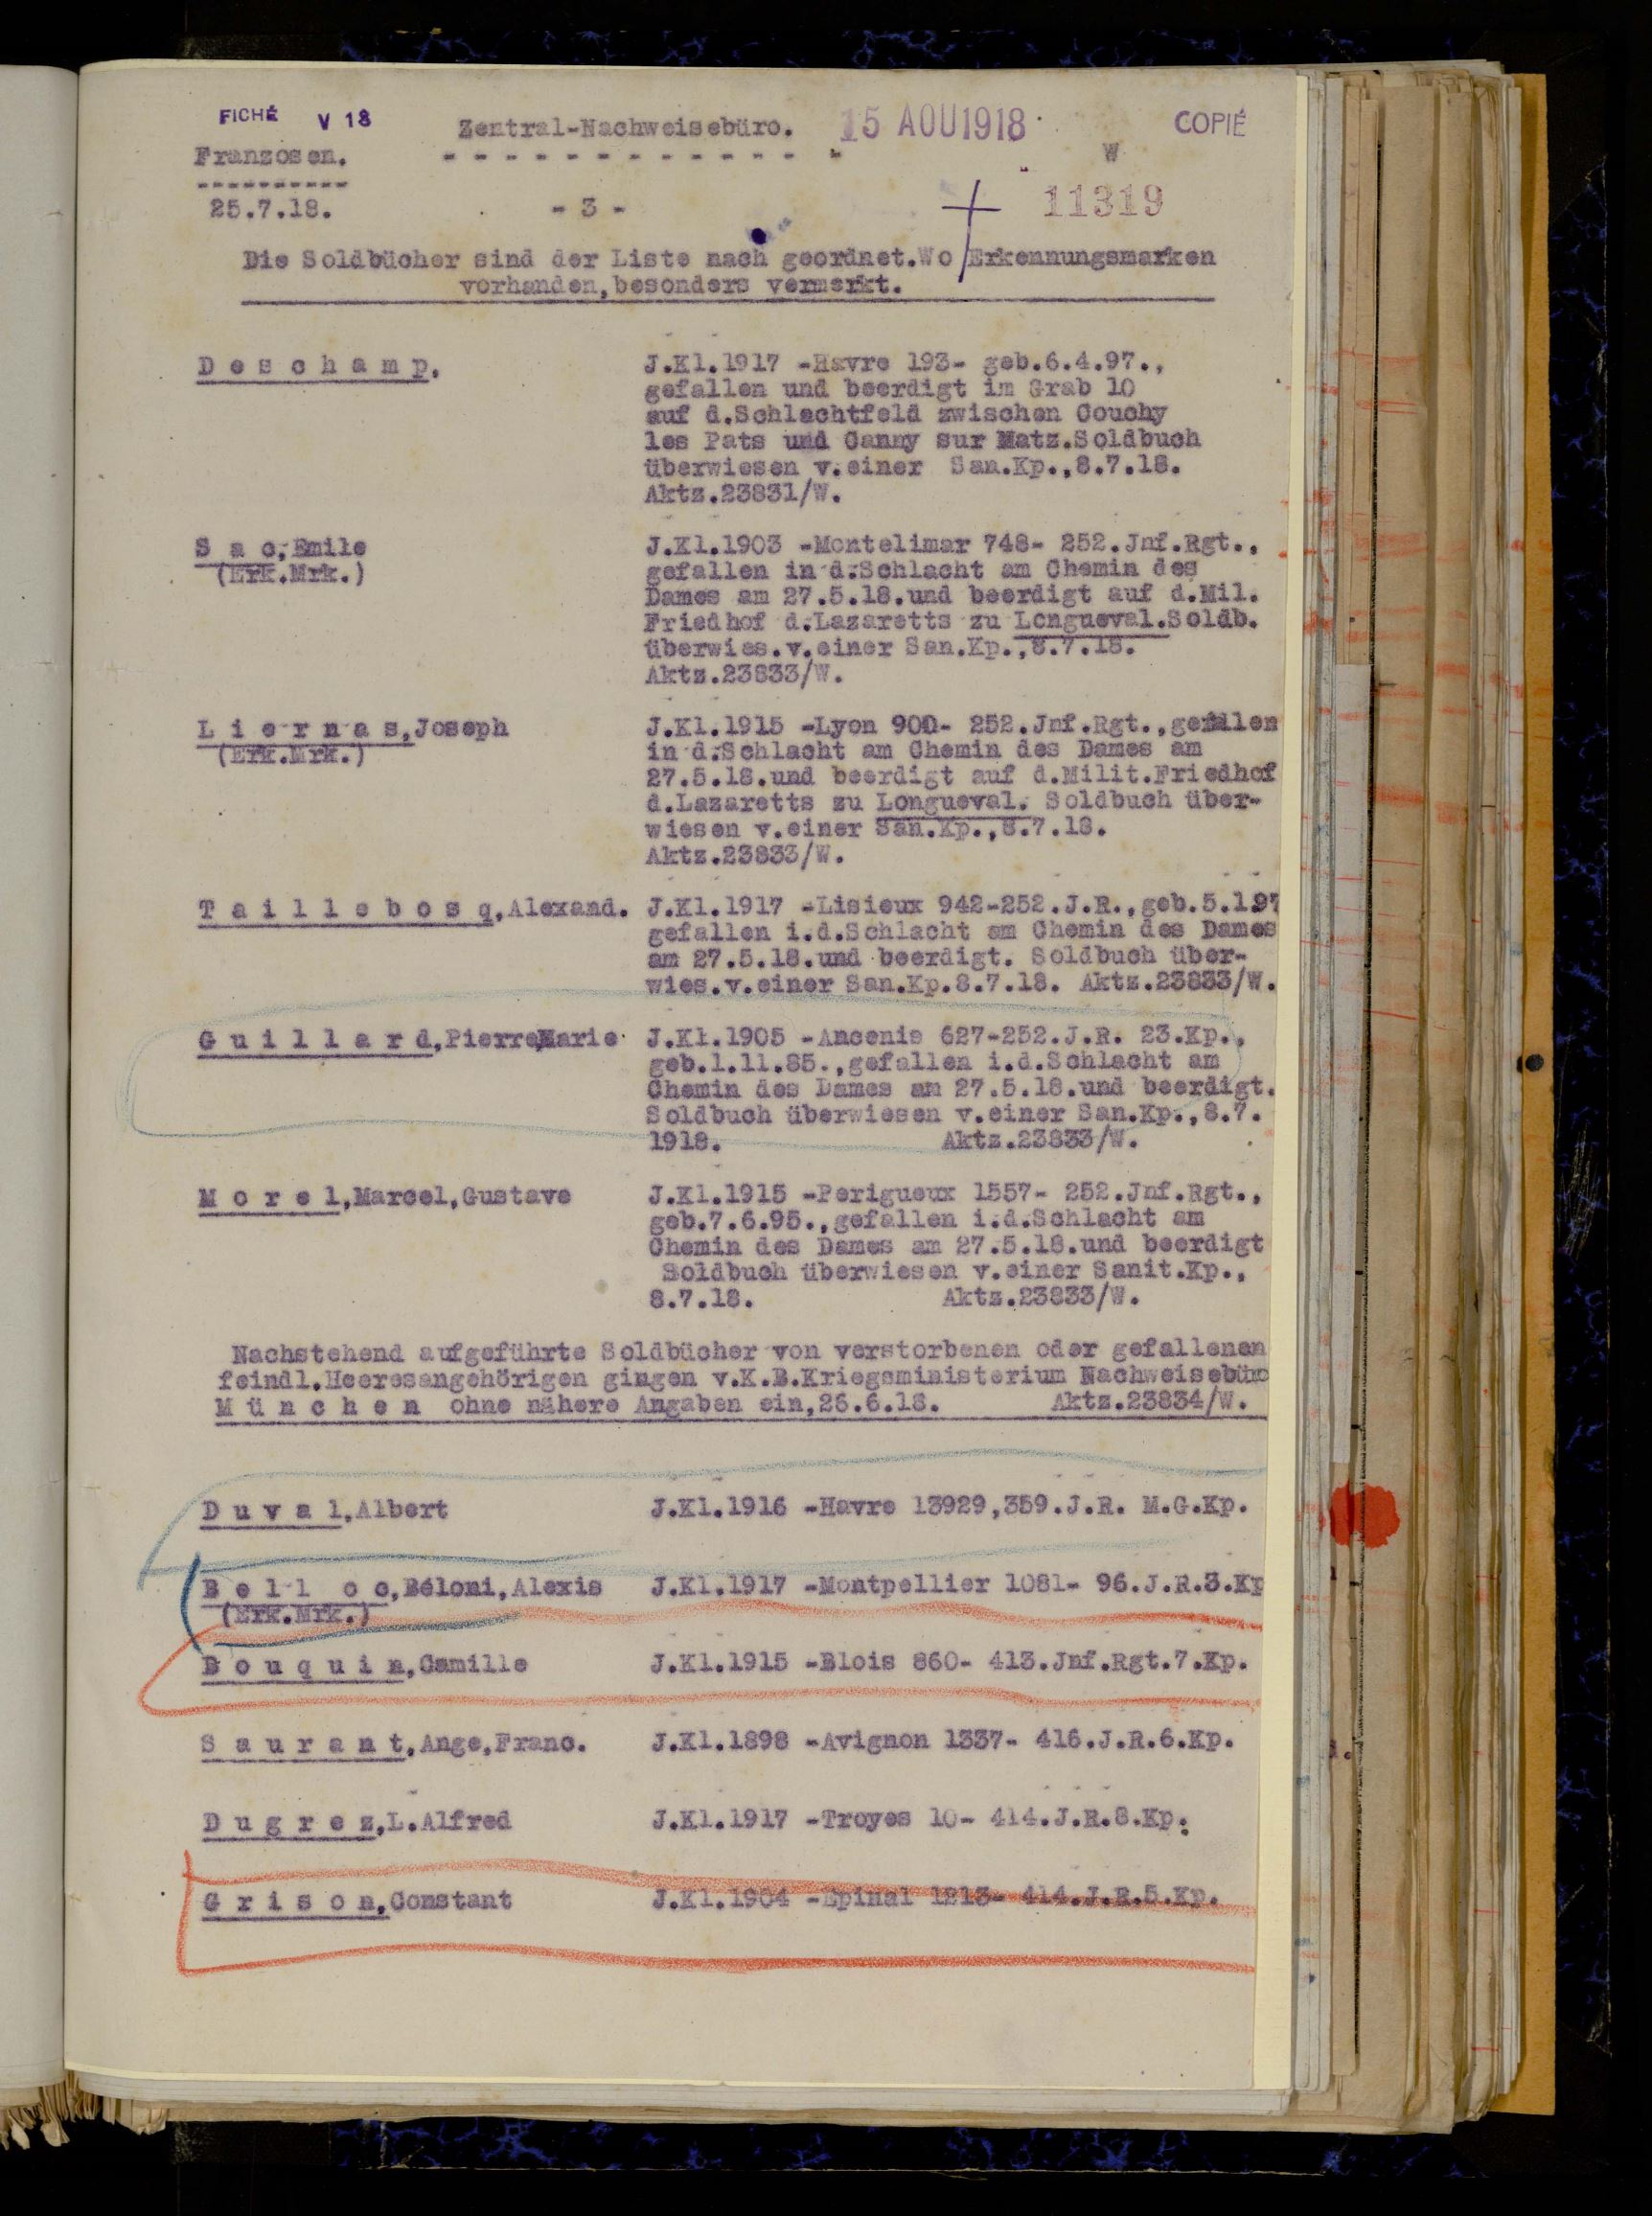 FICHÉ V 18
Zentral-Nachweisebüro. 15 AOU 1918 COPIÉ
Franzosen. W
25.7.18. - 3 - 11319
Die Soldbücher sind der Liste nach geordnet.Wo Erkennungsmarken
vorhanden,besonders vermerkt.
D e s c h a m p. J.Kl.1917 -Havre 193- geb.6.4.97.,
gefallen und beerdigt im Grab 10
auf d.Schlachtfeld zwischen Couchy
les Pats und Canny sur Matz.Soldbuch
überwiesen v.einer San.Kp.,8.7.18.
Aktz.23831/W.
S a c,Emile J.Kl.1903 -Montelimar 748- 252.Jnf.Rgt.,
(Erk.Mrk.) gefallen in d.Schlacht am Chemin des
Dames am 27.5.18.und beerdigt auf d.Mil.
Friedhof d.Lazaretts zu Longueval.Soldb.
überwies.v.einer San.Kp.,8.7.18.
Aktz.23833/W.
L i e r n a s,Joseph J.Kl.1915 -Lyon 900- 252.Jnf.Rgt.,gefallen
(Erk.Mrk.) in d.Schlacht am Chemin des Dames am
27.5.18.und beerdigt auf d.Milit.Friedhof
d.Lazaretts zu Longueval. Soldbuch über-
wiesen v.einer San.Kp.,8.7.18.
Aktz.23833/W.
T a i l l e b o s q,Alexand. J.Kl.1917 -Lisieux 942-252.J.R.,geb.5.1.97
gefallen i.d.Schlacht am Chemin des Dames
am 27.5.18.und beerdigt. Soldbuch über-
wies.v.einer San.Kp.8.7.18. Aktz.23833/W.
G u i l l a r d,Pierre,Marie J.Kl.1905 -Ancenis 627-252.J.R. 23.Kp.,
geb.1.11.85.,gefallen i.d.Schlacht am
Chemin des Dames am 27.5.18.und beerdigt.
Soldbuch überwiesen v.einer San.Kp.,8.7.
1918. Aktz.23833/W.
M o r e l,Marcel,Gustave J.Kl.1915 -Perigueux 1557- 252.Jnf.Rgt.,
geb.7.6.95.,gefallen i.d.Schlacht am
Chemin des Dames am 27.5.18.und beerdigt
Soldbuch überwiesen v.einer Sanit.Kp.,
8.7.18. Aktz.23833/W.
Nachstehend aufgeführte Soldbücher von verstorbenen oder gefallenen
feindl.Heeresangehörigen gingen v.K.B.Kriegsministerium Nachweisebüro
M ü n c h e n ohne nähere Angaben ein,26.6.18. Aktz.23834/W.
D u v a l,Albert J.Kl.1916 -Havre 13929,359.J.R. M.G.Kp.
B e l l o c,Béloni,Alexis J.Kl.1917 -Montpellier 1081- 96.J.R.3.Kp
(Erk.Mrk.)
B o u q u i n,Camille J.Kl.1915 -Blois 860- 413.Jnf.Rgt.7.Kp.
S a u r a n t,Ange,Franc. J.Kl.1898 -Avignon 1337- 416.J.R.6.Kp.
D u g r e z,L.Alfred J.Kl.1917 -Troyes 10- 414.J.R.8.Kp.
G r i s o n,Constant J.Kl.1904 -Epinal 1213- 414.J.R.5.Kp.